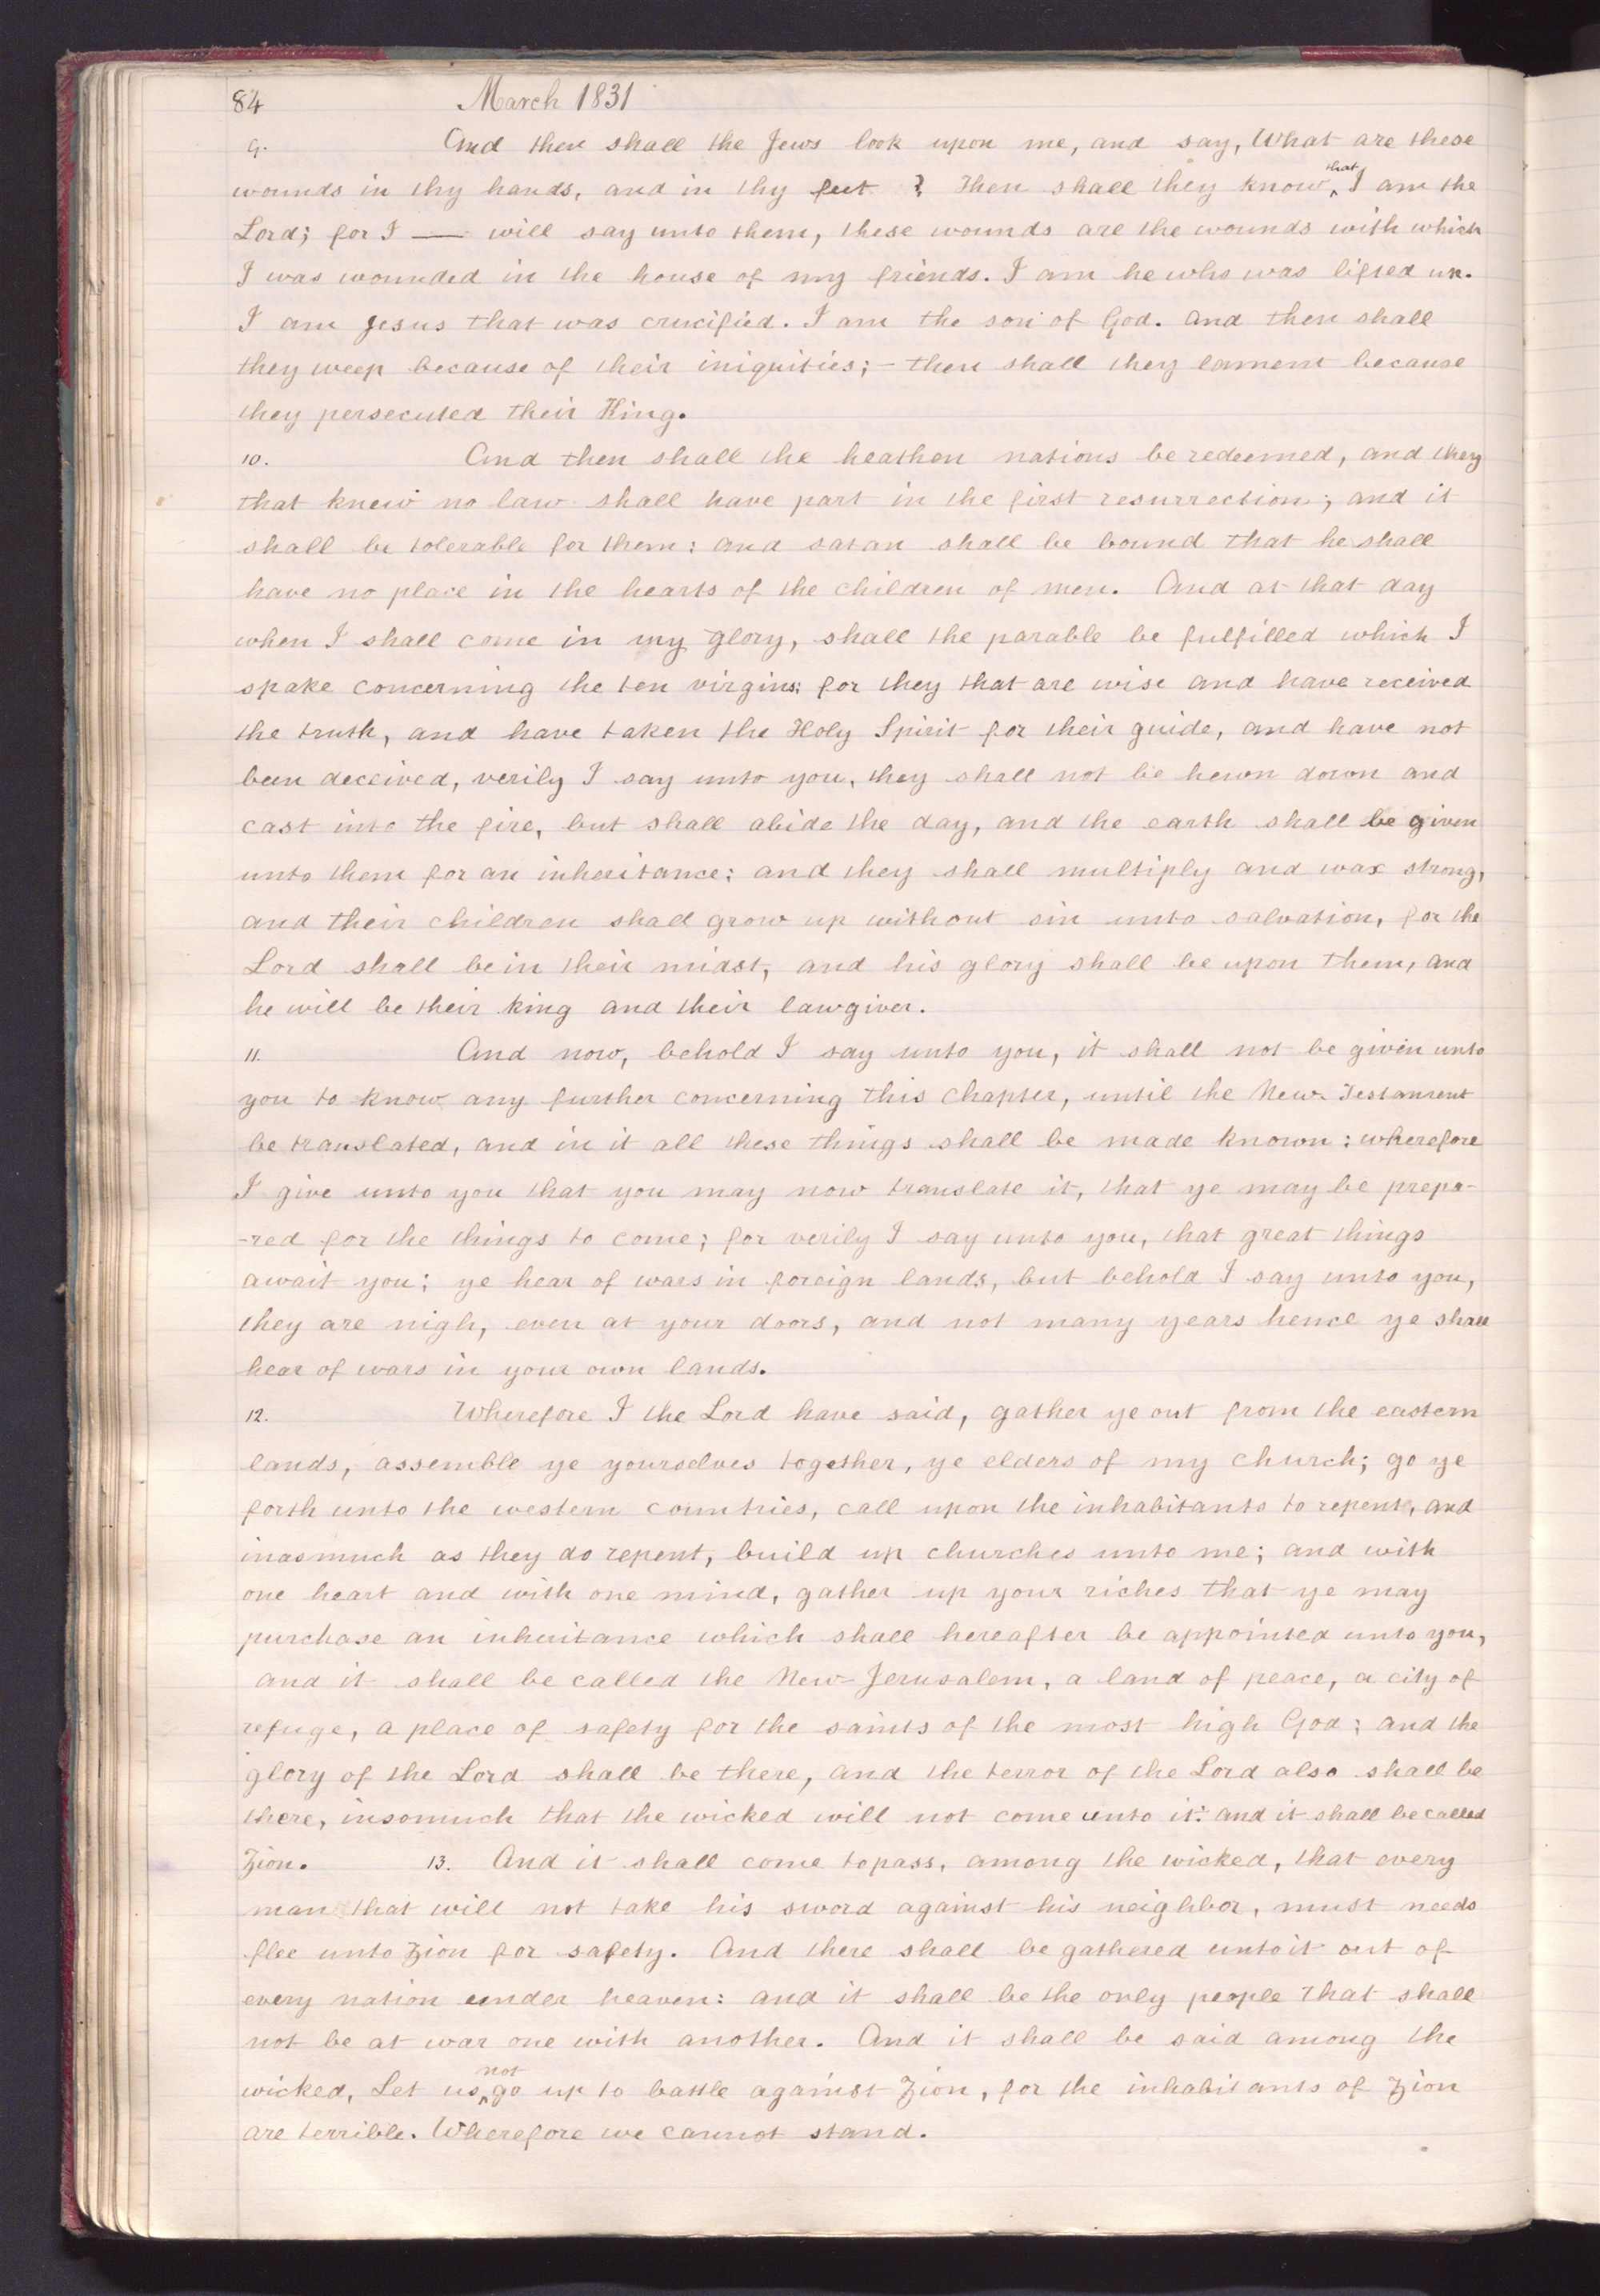 84 March 1831
9. And then shall the Jews look upon me, and say, What are these
wounds in thy hands, and in thy feet ? Then shall they know, that I am the
Lord; for I — will say unto them, these wounds are the wounds with which
I was wounded in the house of my friends. I am he who was lifted up.
I am Jesus that was crucified. I am the son of God. And then shall
they weep because of their iniquities; – then shall they lament because
they persecuted their King.
10. And then shall the heathen nations be redeemed, and they
that knew no law shall have part in the first resurrection; and it
shall be tolerable for them: and satan shall be bound that he shall
have no place in the hearts of the children of men. And at that day
when I shall come in my glory, shall the parable be fulfilled which I
spake concerning the ten virgins; for they that are wise and have received
the truth, and have taken the Holy Spirit for their guide, and have not
been deceived, verily I say unto you, they shall not be hewn down and
cast into the fire, but shall abide the day, and the earth shall be given
unto them for an inheritance; and they shall multiply and wax strong,
and their children shall grow up without sin unto salvation, for the
Lord shall be in their midst, and his glory shall be upon them, and
he will be their king and their lawgiver.
11. And now, behold I say unto you, it shall not be given unto
you to know any further concerning this chapter, until the New Testament
be translated, and in it all these things shall be made known: wherefore
I give unto you that you may now translate it, that ye may be prepa-
-red for the things to come; for verily I say unto you, that great things
await you; ye hear of wars in foreign lands, but behold I say unto you,
they are nigh, even at your doors, and not many years hence ye shall
hear of wars in your own lands.
12. Wherefore I the Lord have said, gather ye out from the eastern
lands, assemble ye yourselves together, ye elders of my church; go ye
forth unto the western countries, call upon the inhabitants to repent, and
inasmuch as they do repent, build up churches unto me; and with
one heart and with one mind, gather up your riches that ye may
purchase an inheritance which shall hereafter be appointed unto you,
and it shall be called the New-Jerusalem, a land of peace, a city of
refuge, a place of safety for the saints of the most high God; and the
glory of the Lord shall be there, and the terror of the Lord also shall be
there, insomuch that the wicked will not come unto it: and it shall be called
Zion. 13. And it shall come to pass, among the wicked, that every
man that will not take his sword against his neighbor, must needs
flee unto Zion for safety. And there shall be gathered unto it out of
every nation under heaven: and it shall be the only people that shall
not be at war one with another. And it shall be said among the
wicked, Let us not go up to battle against Zion, for the inhabitants of Zion
are terrible. Wherefore we cannot stand.